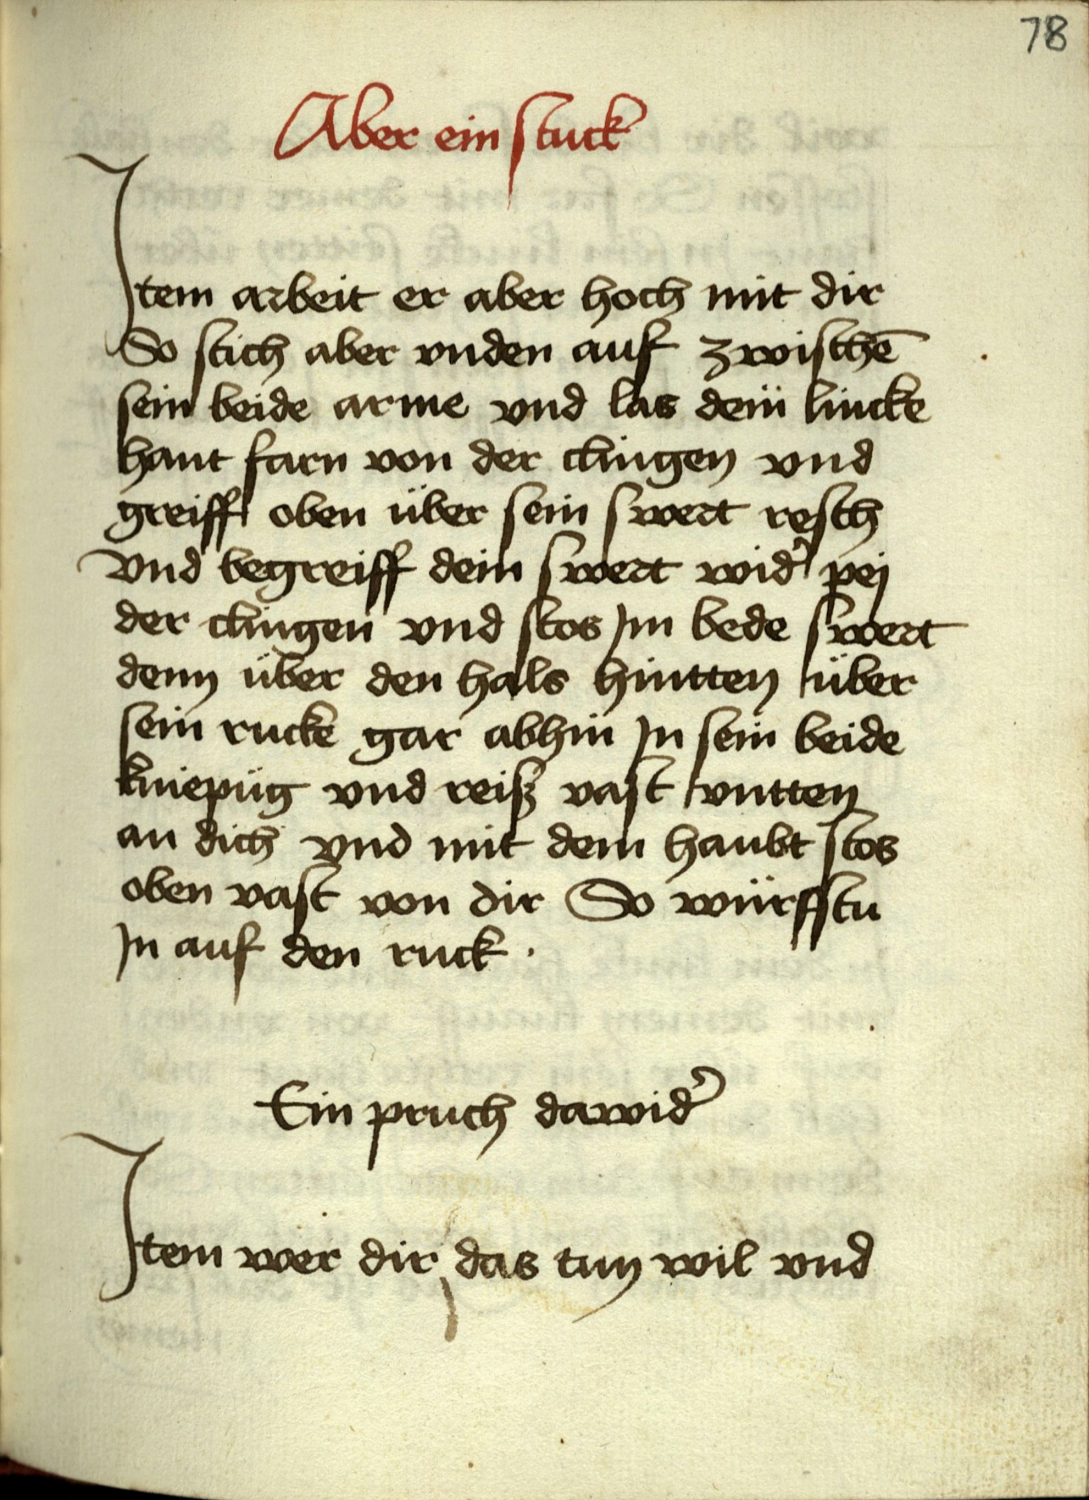 78
Aber ein stuck
Item arbeit er aber hoch mit dir
So stich aber vnden auf zwischē
sein beide arme vnd las dein lincke
hant farn von der clingen vnd
greiff oben über sein swert resch
vnd begreiff dein swert wid̉ pej
der clingen vnd stos Jm bede swert
denn über den hals hintten über
sein rucke gar abhin Jn sein beide
kniepüg vnd reisz vast vntten
an dich vnd mit dem haubt stos
oben vast von dir So würffstu
Jn auf den ruck ·
Ein pruch dawid̉
Item wer dir das tun wil vnd